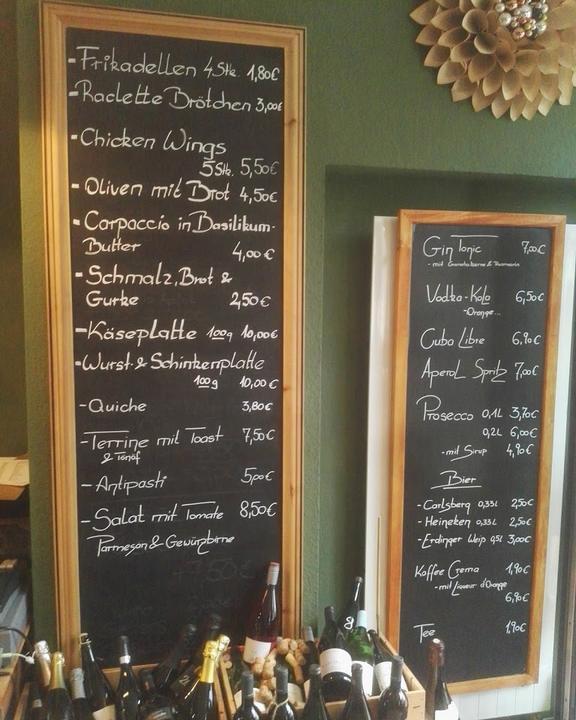 - Frikadellen 4Stk. 1,80€
- Raclette Brötchen 3,00€
- Chicken Wings
5Stk. 5,50€
- Oliven mit Brot 4,50€
- Carpaccio in Basilikum-
Butter 4,00€
- Schmalz, Brot &
Gurke 2,50€
- Käseplatte 100g 10,00€
- Wurst- & Schinkenplatte
100g 10,00€
- Quiche 3,80€
- Terrine mit Toast 7,50€
- Antipasti 5,00€
- Salat mit Tomate 8,50€
Parmesan & Gewürzbirne
Gin Tonic 7,00€
Vodka-Kola 6,50€
-Orange...
Cuba Libre 6,90€
Aperol Spritz 7,00€
Prosecco 0,1L 3,70€
0,2L 6,00€
- mit Sirup 4,90€
Bier
- Carlsberg 0,33L 2,50€
- Heineken 0,33L 2,50€
- Erdinger Weiß 0,5l 3,00€
Kaffee Crema 1,90€
- mit Liqueur d'Orange
6,90€
Tee 1,90€